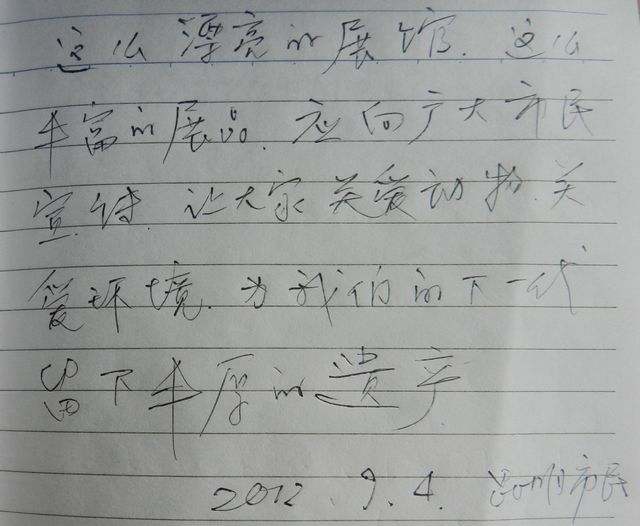 这么漂亮的展馆.这么
丰富的展品.应向广大市民
宣传.让大家关爱动物.关
爱环境.为我们的下一代
留下丰厚的遗产
2012.9.4.昆明市民